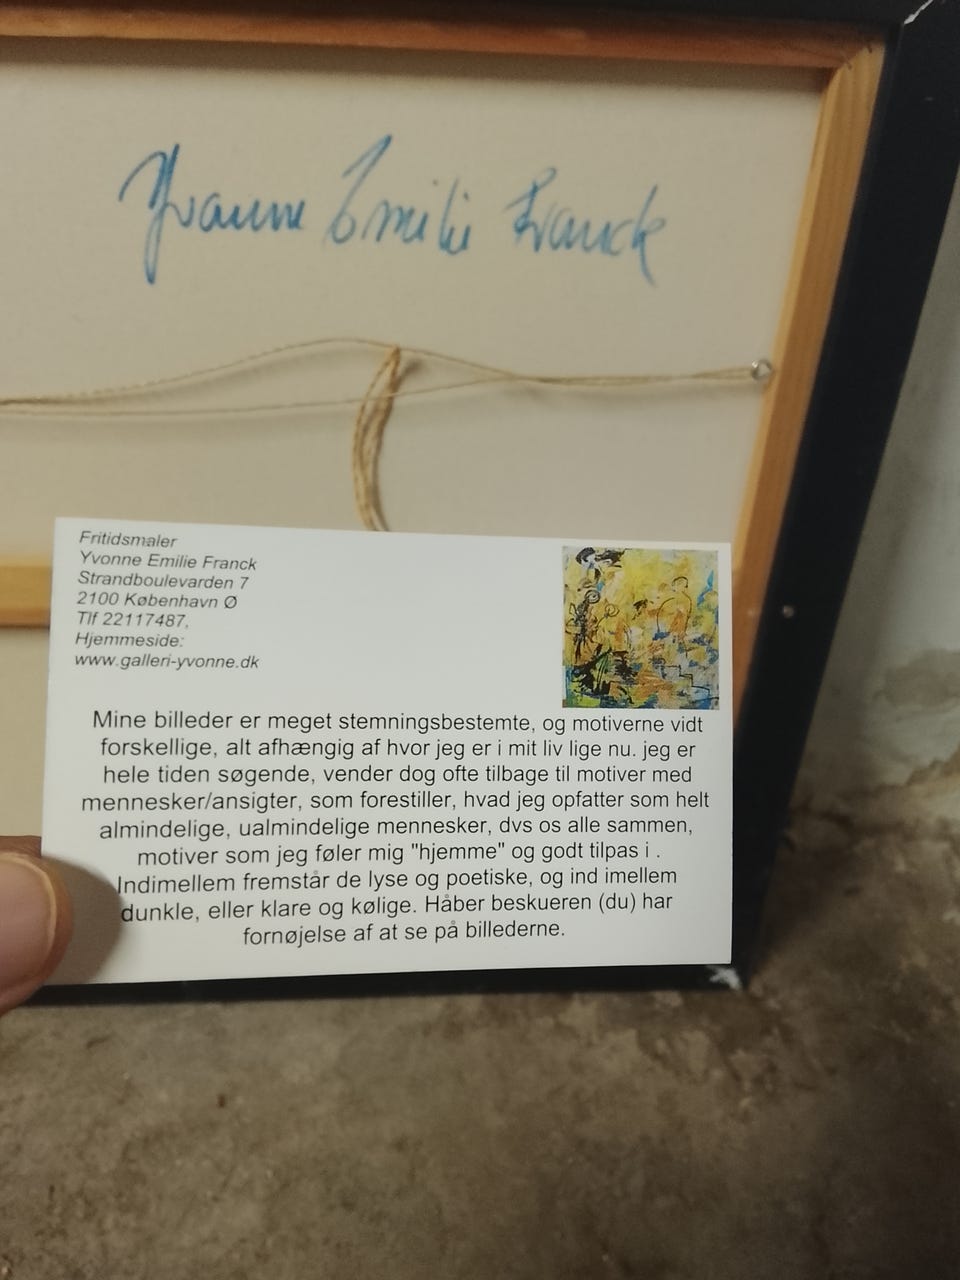 Yvonne Emilie Franck
Fritidsmaler
Yvonne Emilie Franck
Strandboulevarden 7
2100 København Ø
Tlf 22117487,
Hjemmeside:
www.galleri-yvonne.dk
Mine billeder er meget stemningsbestemte, og motiverne vidt
forskellige, alt afhængig af hvor jeg er i mit liv lige nu. jeg er
hele tiden søgende, vender dog ofte tilbage til motiver med
mennesker/ansigter, som forestiller, hvad jeg opfatter som helt
almindelige, ualmindelige mennesker, dvs os alle sammen,
motiver som jeg føler mig "hjemme" og godt tilpas i .
Indimellem fremstår de lyse og poetiske, og ind imellem
dunkle, eller klare og kølige. Håber beskueren (du) har
fornøjelse af at se på billederne.